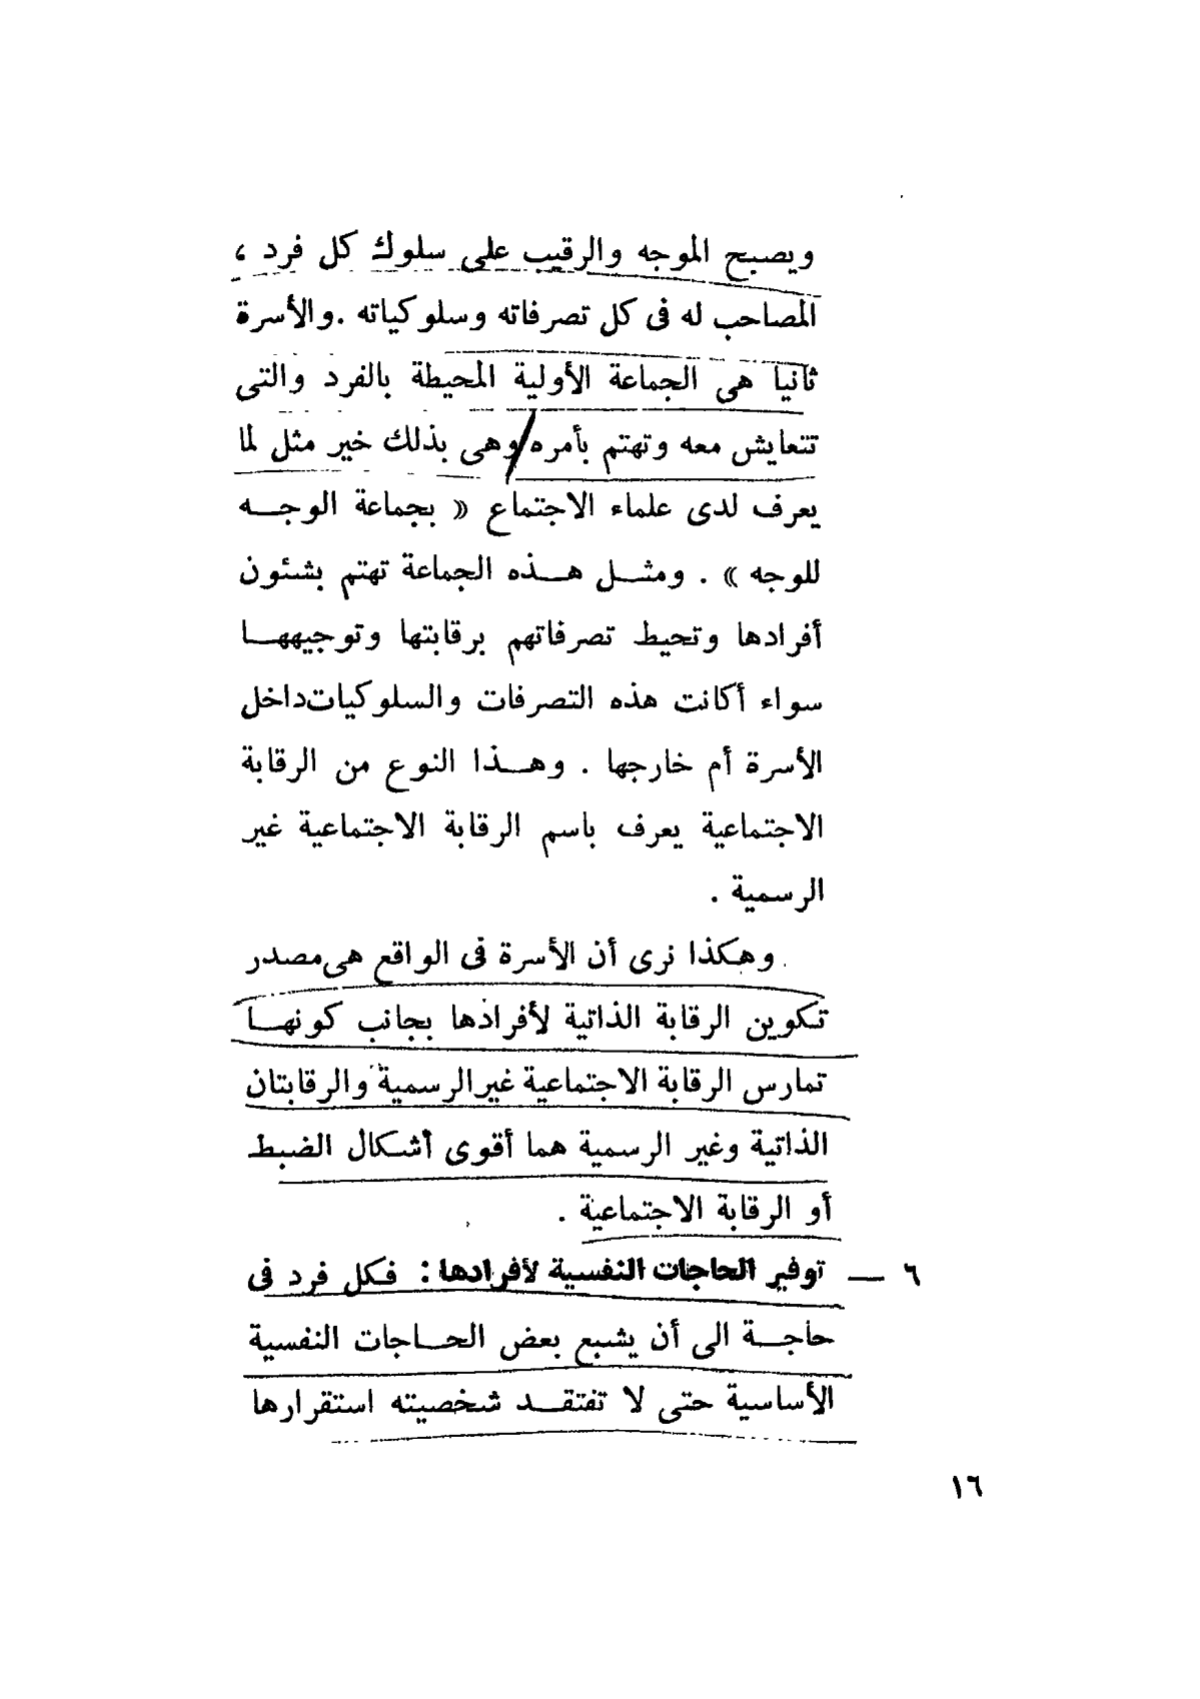 ويصبح الموجه والرقيب على سلوك كل فرد ،
المصاحب له فى كل تصرفاته وسلوكياته .والأسرة
ثانيا هى الجماعة الأولية المحيطة بالفرد والتى
تتعايش معه وتهتم بأمره وهى بذلك خير مثل لما
يعرف لدى علماء الاجتماع « بجماعة الوجـــه
للوجه » . ومثـــل هـــذه الجماعة تهتم بشئون
أفرادها وتحيط تصرفاتهم برقابتها وتوجيههـــا
سواء أكانت هذه التصرفات والسلوكيات داخل
الأسرة أم خارجها . وهـــذا النوع من الرقابة
الاجتماعية يعرف باسم الرقابة الاجتماعية غير
الرسمية .
وهكذا نرى أن الأسرة فى الواقع هى مصدر
تكوين الرقابة الذاتية لأفرادها بجانب كونهـــا
تمارس الرقابة الاجتماعية غير الرسمية والرقابتان
الذاتية وغير الرسمية هما أقوى أشكال الضبط
أو الرقابة الاجتماعية .
٦ — توفير الحاجات النفسية لأفرادها : فكل فرد فى
حاجـــة الى أن يشبع بعض الحـــاجات النفسية
الأساسية حتى لا تفتقـــد شخصيته استقرارها
١٦